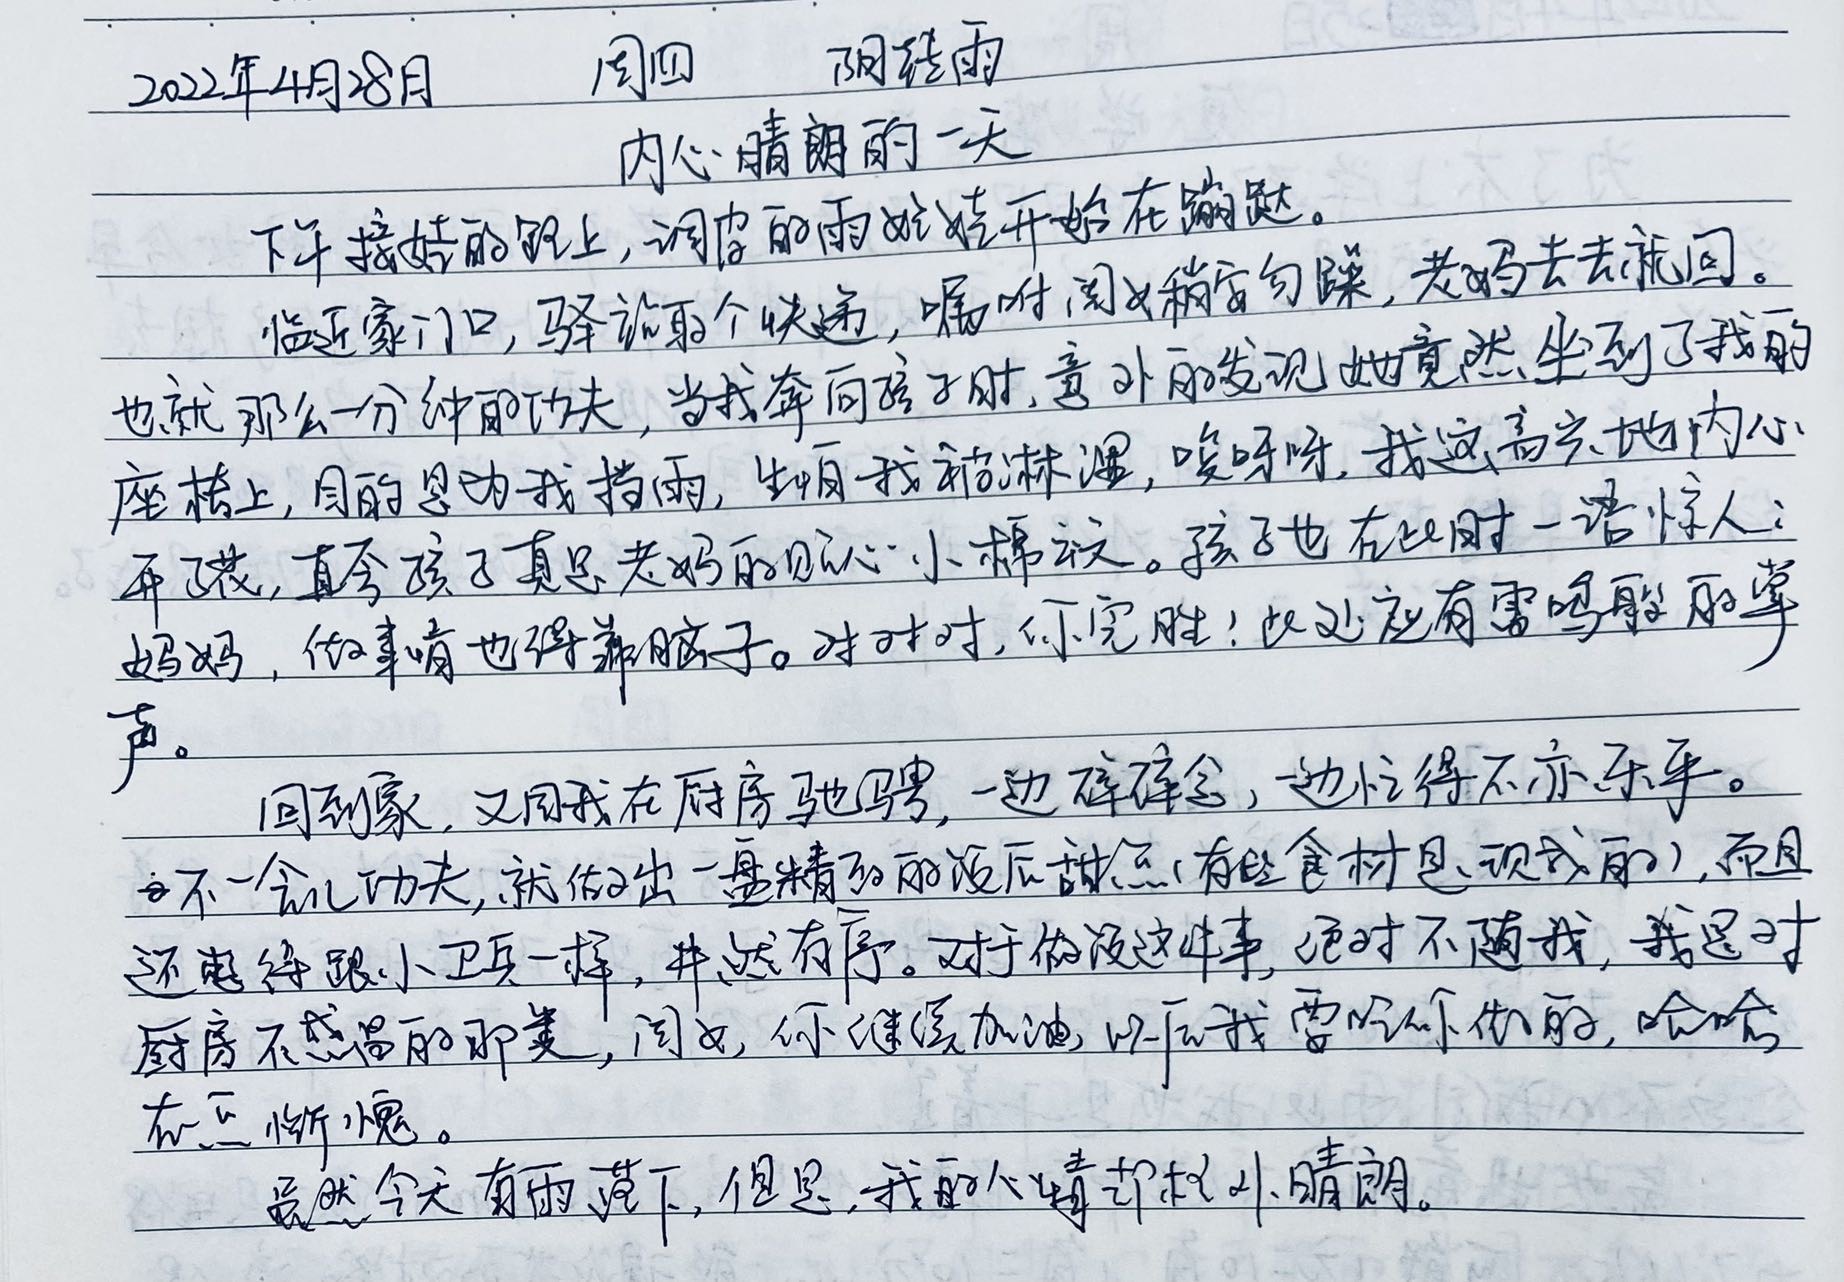 2022年4月28日 周四 阴转雨
内心晴朗的一天
下午接娃的路上，调皮的雨娃娃开始在蹦跶。
临近家门口，驿站取个快递，嘱咐闺女稍安勿躁，老妈去去就回。
也就那么一分钟的功夫，当我奔向孩子时，意外的发现她竟然坐到了我的
座椅上，目的是为我挡雨，生怕我被淋湿，唉呀呀，我这高兴地内心
开了花，直夸孩子真是老妈的贴心小棉袄。孩子也在此时一语惊人：
妈妈，做事情也得靠脑子。对对对，你完胜！此处应有雷鸣般的掌
声。
回到家，又围我在厨房驰骋，一边碎碎念，一边忙得不亦乐乎。
不一会儿功夫，就做出一盘精致的饭后甜点（有些食材是现成的），而且
还摆得跟小卫兵一样，井然有序。对于做饭这件事，绝对不随我，我是对
厨房不感冒的那类，闺女，你继续加油，以后我要吃你做的，哈哈
有点惭愧。
虽然今天有雨落下，但是，我的心情却格外晴朗。